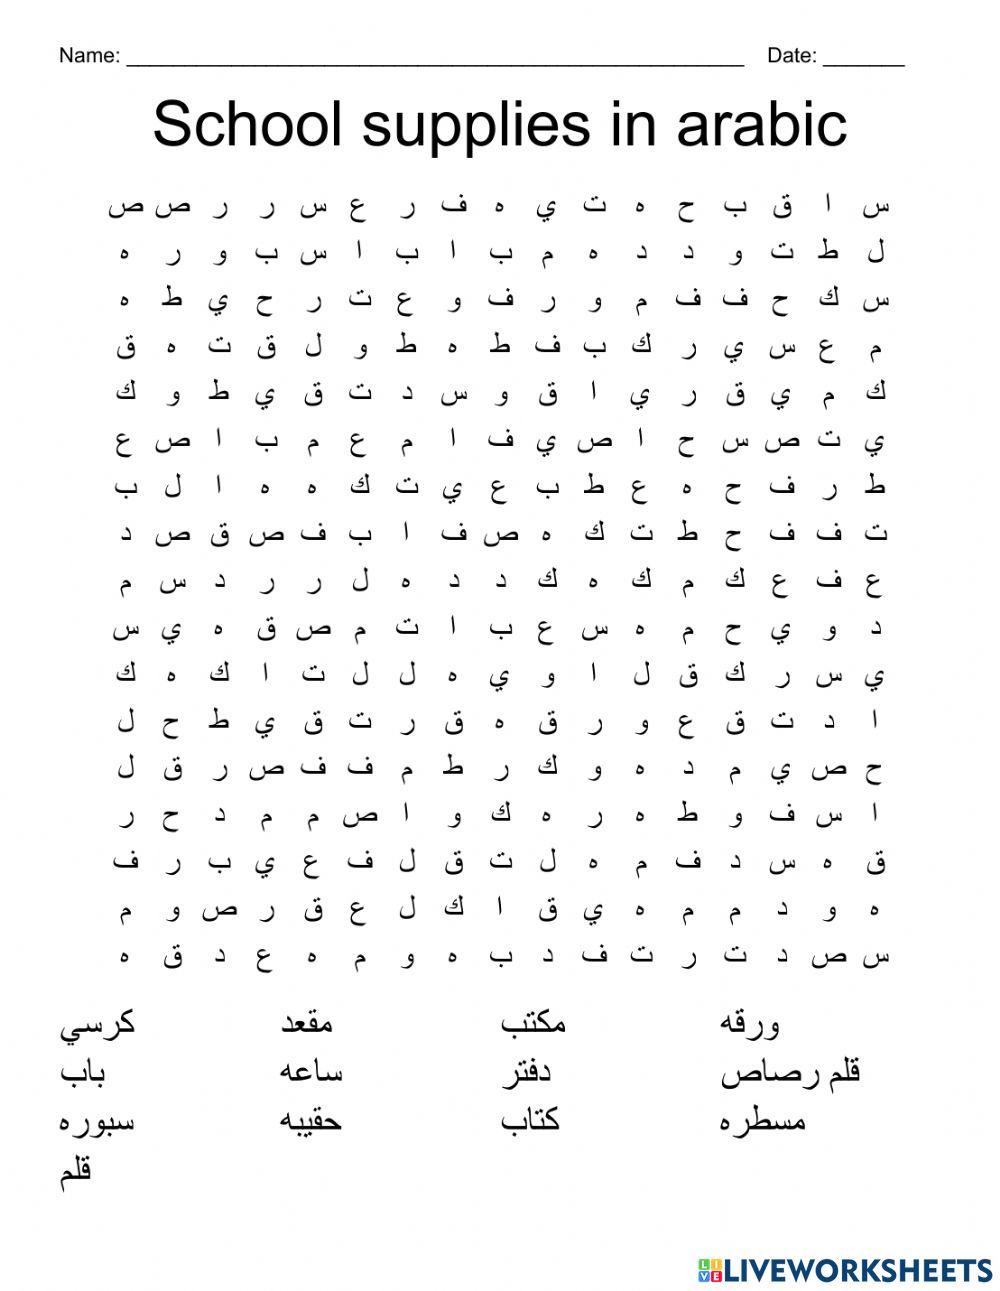 Name: Date:
School supplies in arabic
س ا ق ب ح ه ت ي ه ف ر ع س ر ر ص ص
ل ط ت و د د ه م ب ا ب ا س ب و ر ه
س ك ح ف ف م و ر ف و ع ت ر ح ي ط ه
م ع س ي ر ك ب ف ط ه ط و ل ق ت ه ق
ك م ي ق ر ي ا ق و س د ت ق ي ط و ك
ي ت ص س ح ا ص ي ف ا م ع م ب ا ص ع
ط ر ف ح ه ع ط ب ع ي ت ك ه ه ا ل ب
ت ف ف ح ط ت ك ه ص ف ا ب ف ص ق ص د
ع ف ع ك م ك ه ك د د ه ل ر ر د س م
د و ي ح م ه س ع ب ا ت م ص ق ه ي س
ي س ر ك ق ل ا و ي ه ل ل ت ا ك ه ك
ا د ت ق ع و ر ق ه ق ر ت ق ي ط ح ل
ح ص ي م د ه و ك ر ط م ف ف ص ر ق ل
ا س ف و ط ه ر ه ك و ا ص م م د ح ر
ق ه س د ف م ه ل ت ق ل ف ع ي ب ر ف
ه و د م م ه ي ق ا ك ل ع ق ر ص و م
س ص د ت ر ت ف د ب ه و م ه ع د ق ه
ورقه مكتب مقعد كرسي
قلم رصاص دفتر ساعه باب
مسطره كتاب حقيبه سبوره
قلم
LIVEWORKSHEETS